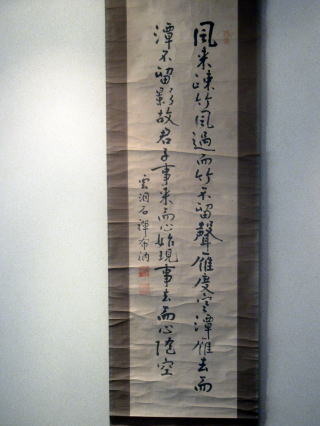 風来疎竹風過而竹不留聲雁度寒潭雁去而
潭不留影故君子事来而心始現事去而心随空
雲洞石禅布衲